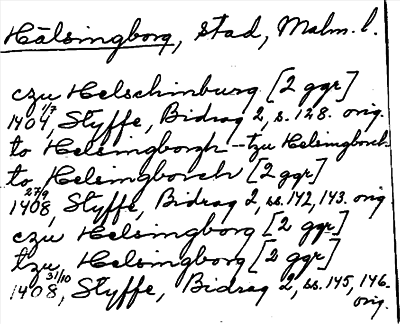 Hälsingborg, stad, Malm. l.
czu Helschinburg [2 ggr]
1404 1/7, Styffe, Bidrag 2, s. 128. orig.
to Helsingborgh - tzu Helsingborch
to Helsingborch [2 ggr]
1408 27/9, Styffe, Bidrag 2, ss. 142, 143. orig.
czu Helsingborg [2 ggr]
tzu Helsingborg [2 ggr]
1408 31/10, Styffe, Bidrag 2, ss. 145, 146.
orig.